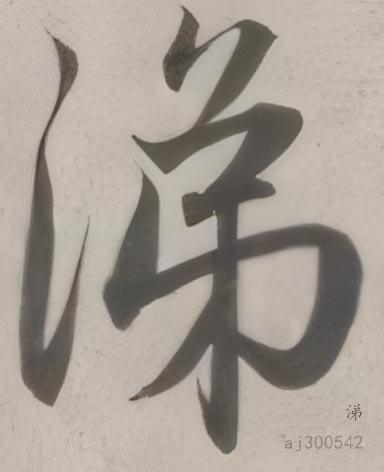 涕
涕
aj300542